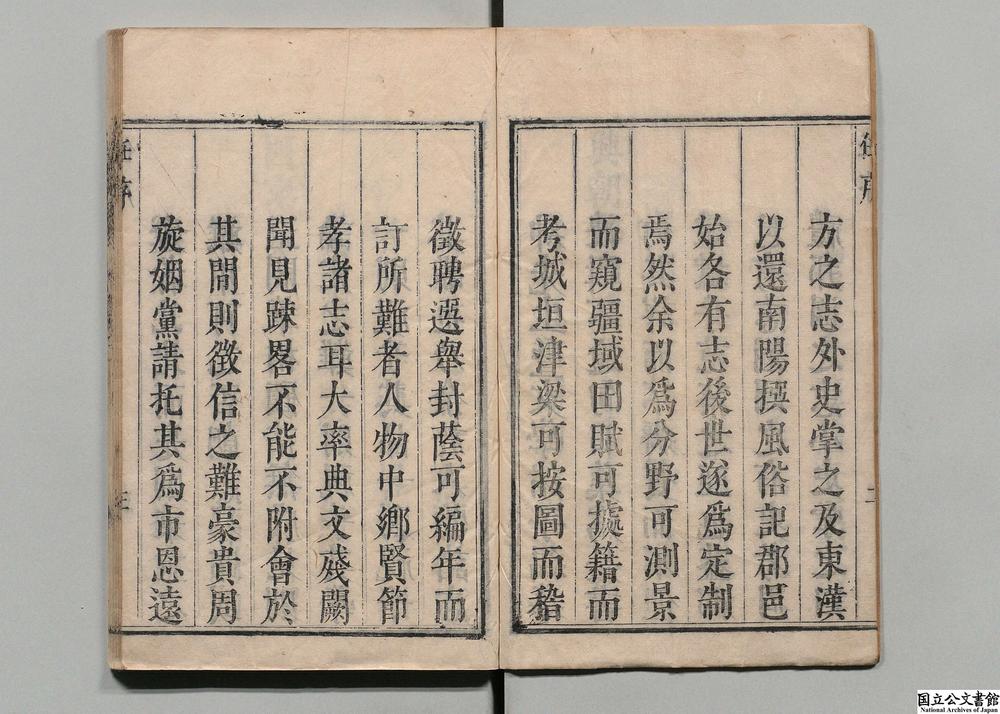 方之志外史掌之及東漢
以還南陽撰風俗記郡邑
始各有志後世遂爲定制
焉然余以爲分野可測景
而窺疆域田賦可據籍而
考城垣津梁可按圖而稽
二
徵聘選舉封蔭可編年而
訂所難者人物中鄉賢節
孝諸志耳大率典文殘闕
聞見踈畧不能不附會於
其間則徵信之難豪貴周
旋姻黨請托其爲市恩遠
三
国立公文書館
National Archives of Japan